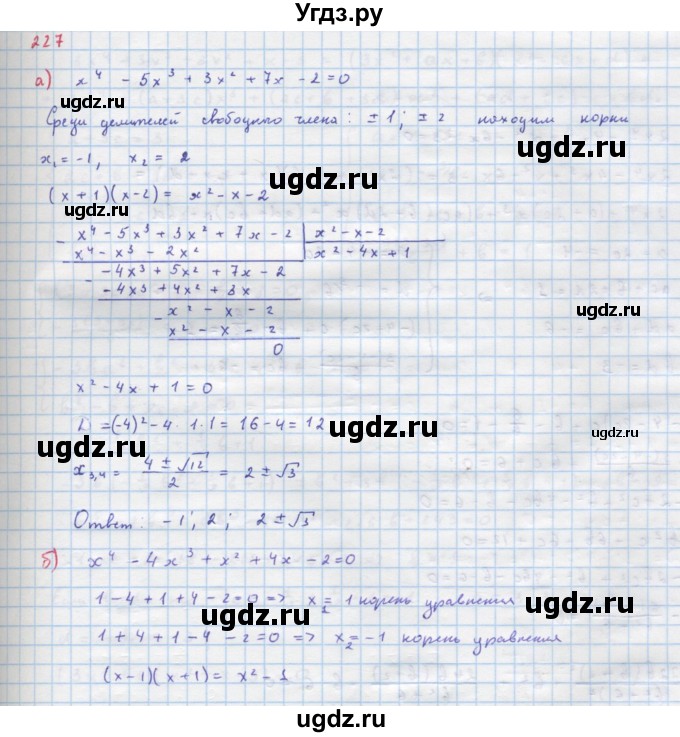 Угдз.ру
227
а) x⁴ - 5x³ + 3x² + 7x - 2 = 0
ugdz.ru
Среди делителей свободного члена: ± 1; ± 2 находим корни
ugdz.ru
x₁ = -1, x₂ = 2
ugdz.ru
(x + 1)(x - 2) = x² - x - 2
ugdz.ru
- x⁴ - 5x³ + 3x² + 7x - 2 | x² - x - 2
x⁴ - x³ - 2x² | x² - 4x + 1
ugdz.ru
- -4x³ + 5x² + 7x - 2
-4x³ + 4x² + 8x
ugdz.ru
- x² - x - 2
x² - x - 2
ugdz.ru
0
x² - 4x + 1 = 0
D = (-4)² - 4 · 1 · 1 = 16 - 4 = 12
ugdz.ru
ugdz.ru
x₃,₄ = (4 ± √12)/2 = 2 ± √3
ugdz.ru
Ответ: -1; 2; 2 ± √3
ugdz.ru
б) x⁴ - 4x³ + x² + 4x - 2 = 0
1 - 4 + 1 + 4 - 2 = 0 => x₁ = 1 корень уравнения
ugdz.ru
ugdz.ru
1 + 4 + 1 - 4 - 2 = 0 => x₂ = -1 корень уравнения
(x - 1)(x + 1) = x² - 1
ugdz.ru
ugdz.ru
ugdz.ru